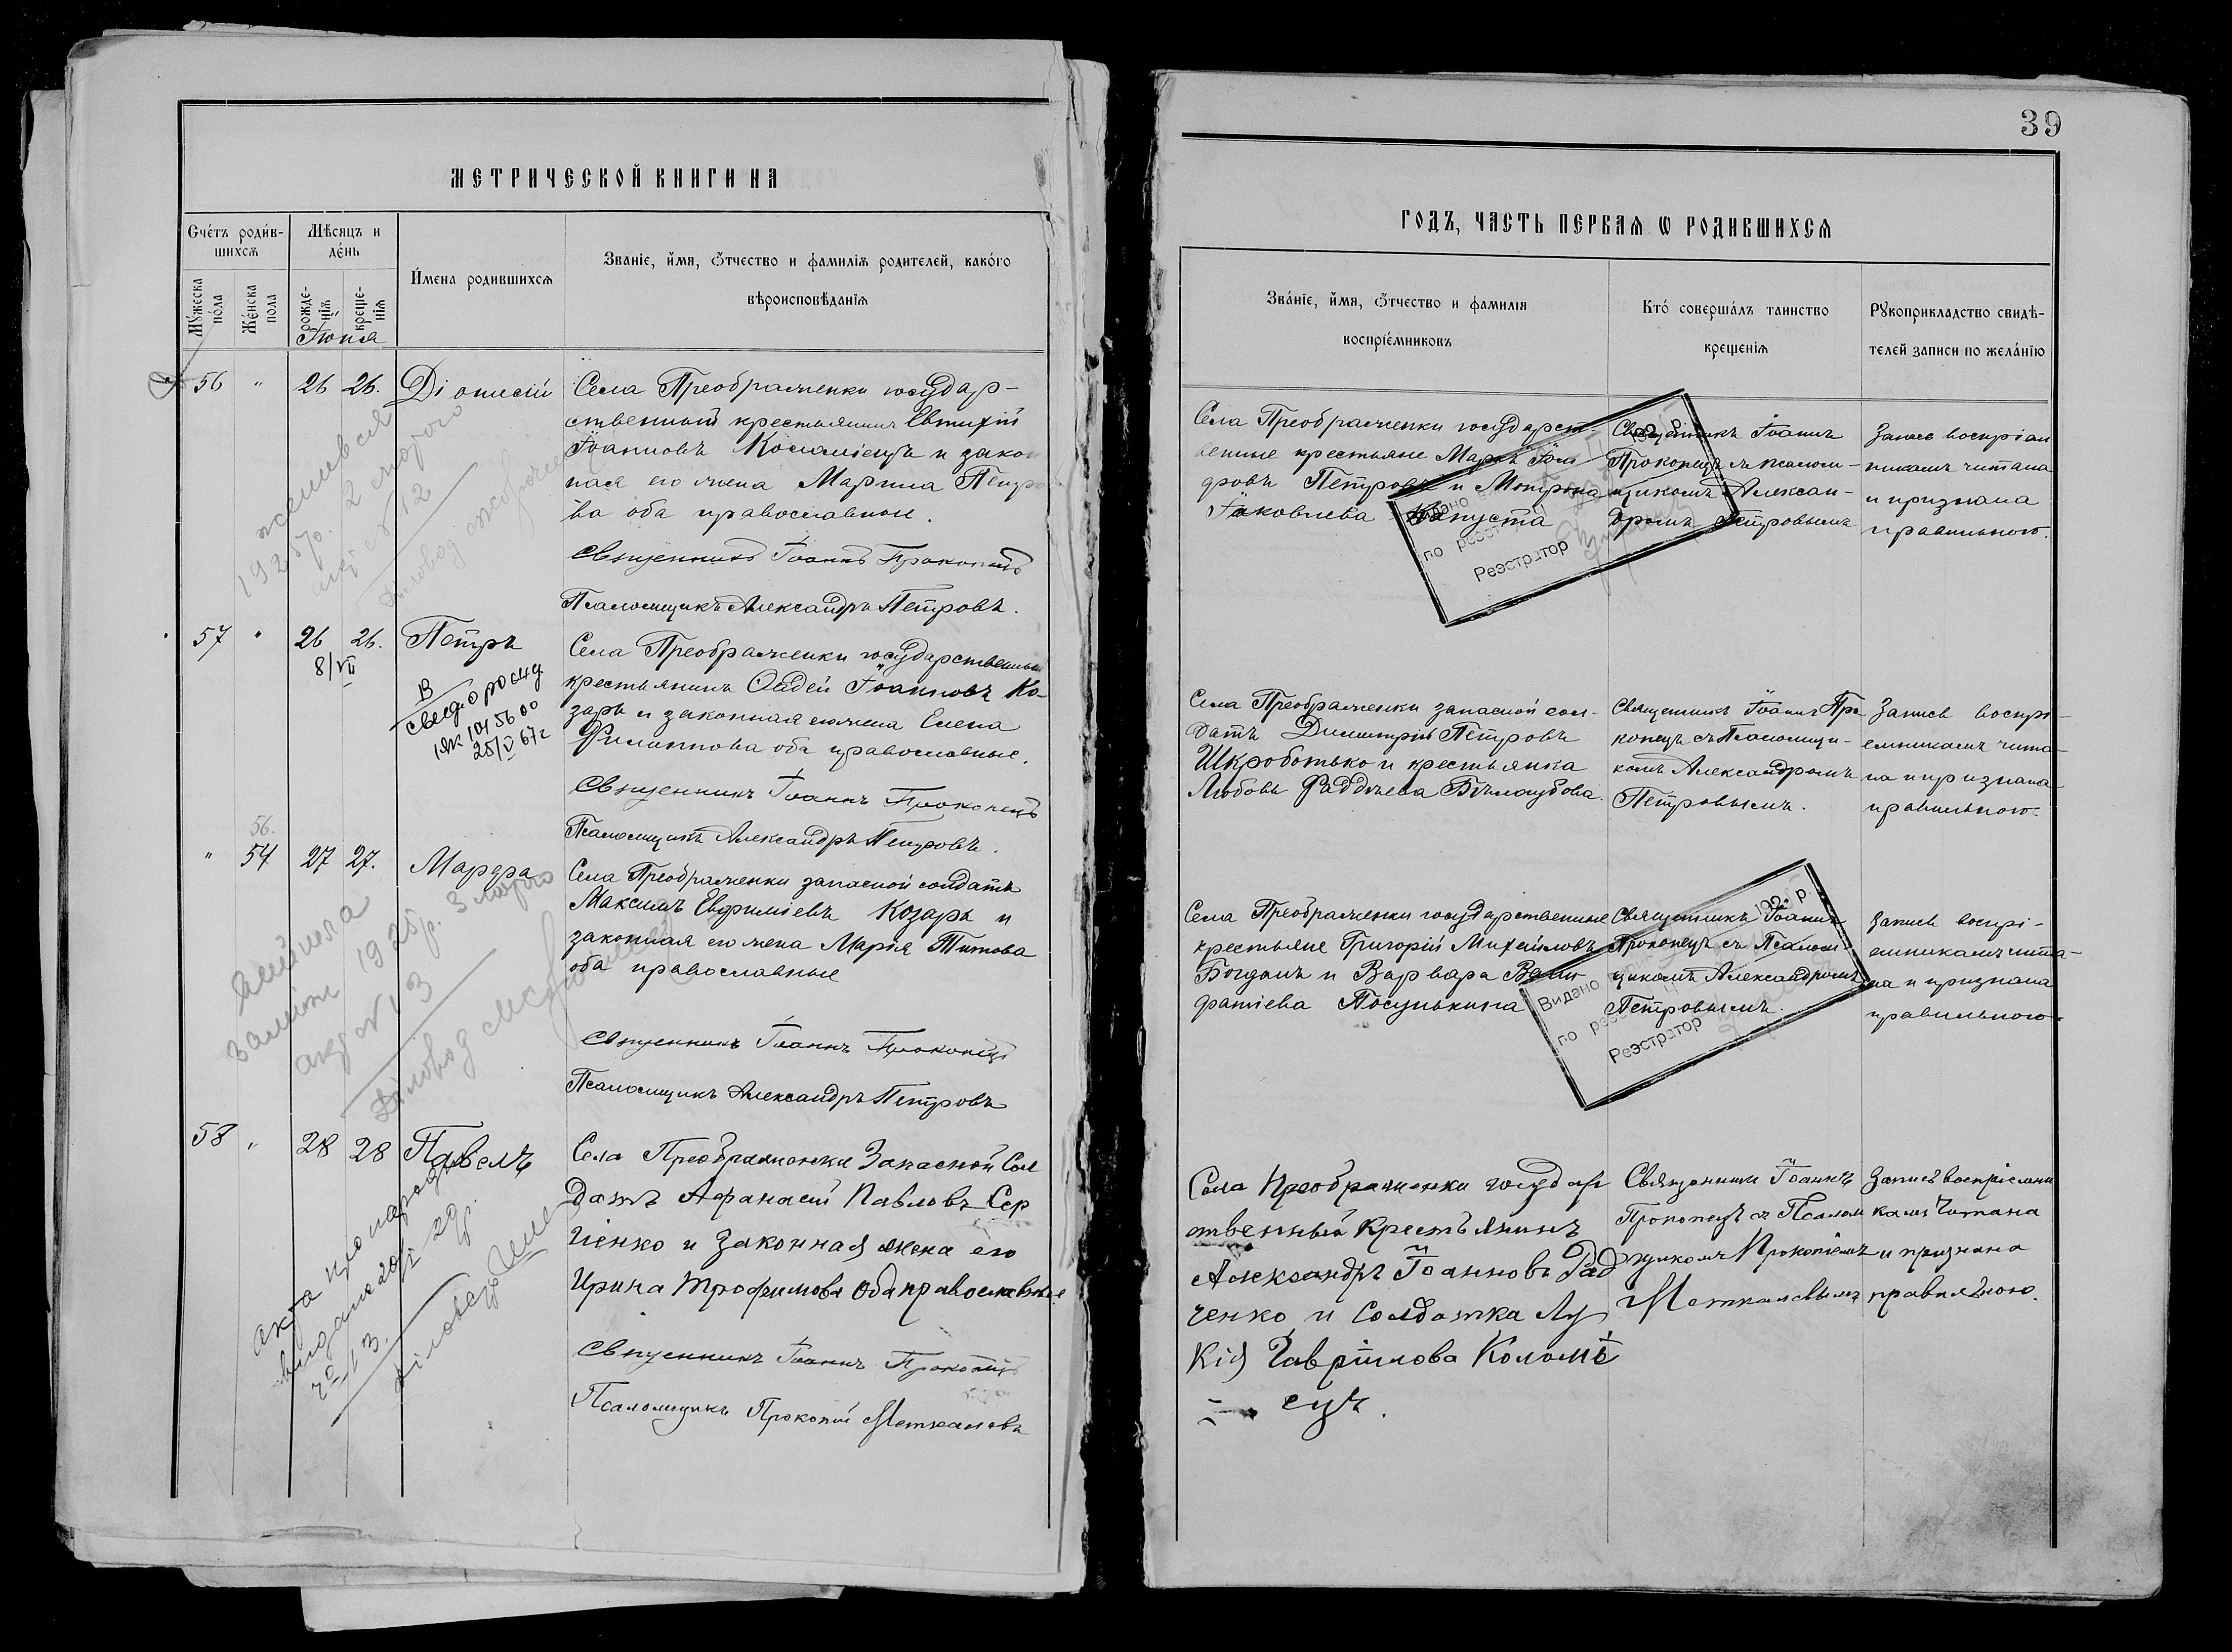 МЕТРИЧЕСКОЙ КНИГИ НА
Счéтъ роди́в-
шихсѧ
Мѣ́сяцъ и
де́нь
И́мена родившихсѧ
Званіе, и́мя, ѻ́тчество и фамиліѧ родителей, како́го
вѣроисповѣ́даніѧ
Му́жеска
по́ла
Же́нска
пола
рожде-
ніѧ
креще-
нія
Іюня
56 " 26 26. Діонисій
Села Преображенки государ-
ственный крестьянинъ Евтихій
Іоанновъ Коломіецъ и закон
ная его жена Марина Петро
ва оба православные.
Священникъ Іоаннъ Прокопецъ
Псаломщикъ Александръ Петровъ.
женився
1925 р. 2 лютого
акт № 12
57 " 26 26. Петръ
8/VII
В
свид о рожд
25/V 67г
Села Преображенки государственный
крестьянинъ Авдей Іоанновъ Ко-
зарь и законная его жена Елена
Филиппова оба православные.
Священникъ Іоаннъ Прокопецъ
Псаломщикъ Александръ Петровъ.
56.
" 54 27 27. Марфа
Села Преображенки запасной солдатъ
Максимъ Евфиміевъ Козарь и
законная его жена Марія Титова
оба православные
Священникъ Іоаннъ Прокопецъ
Псаломщикъ Александръ Петровъ
1925 р. 3
акт № 13
58 " 28 28 Павелъ
Села Преображенки Запасной Сол
датъ Афанасій Павловъ Сер
гіенко и Законная жена его
Ирина Трофимова Оба православные
Священникъ Іоаннъ Прокопецъ
Псаломщикъ Прокопій Меткалевъ
39
ГОДЪ, ЧАСТЬ ПЕРВАЯ Ѡ РОДИВШИХСЯ
Зва́ніе, и́мя, ѻ́тчество и фамилія
воспріе́мниковъ
Кто́ соверша́лъ таинство
крещенія
Рꙋкоприкладство свидѣ-
телей записи по жела́нію
Села Преображенки государст-
венные крестьяне Маркъ
дровъ Петровъ и Матрона
Іаковлева Капуста
Священникъ Іоаннъ
Прокопецъ съ псалом-
щикомъ Алексан-
дромъ Петровымъ
Запись воспріем
никамъ читана
и признана
правильною.
Видано
192 р.
по реєстр
Реэстратор
Села Преображенки запасной сол-
датъ Димитрій Петровъ
Шкроботько и крестьянка
Любовь Фаддѣева Бѣлоубова.
Священникъ Іоаннъ Про
копецъ съ Псаломщи-
комъ Александромъ
Петровымъ.
Запись воспрі-
емникамъ чита-
на и признана
правильною.
Села Преображенки государственные
крестьяне Григорій Михайловъ
Богданъ и Варвара
фатіева Посунькина
Священникъ Іоаннъ
Прокопецъ съ Псалом-
щикомъ Александромъ
Петровымъ.
Запись воспрі-
емникамъ чита-
на и признана
правильною.
Видано
192 р.
по реєстр
Реэстратор
Села Преображенки государ
ственный Крестьянинъ
Александръ Іоанновъ Рад
ченко и Солдатка Лу
кія Гавріилова Коломі
ецъ.
Священникъ Іоаннъ
Прокопецъ съ Псалом
щикомъ Прокопіемъ
Меткалевымъ
Запись воспріемни
камъ Читана
и признана
правильною.